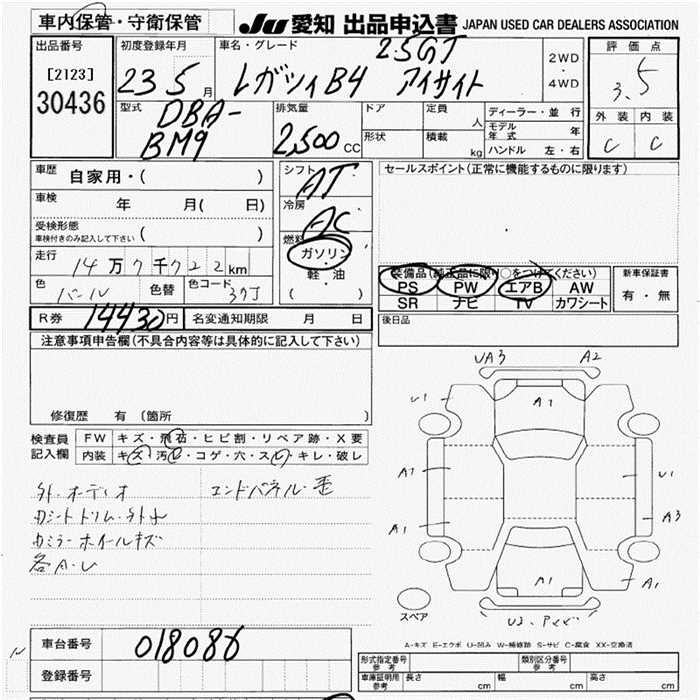 車内保管・守衛保管
JU 愛知 出品申込書 JAPAN USED CAR DEALERS ASSOCIATION
出品番号
[2123]
30436
初度登録年月
23 5 月
車名・グレード
2.5GT
レガシィB4 アイサイト
2WD
・
4WD
評価点
3.5
外装 内装
C C
型式
DBA-
BM9
排気量
2,500 CC
ドア
形状
定員
人
積載
kg
ディーラー・並行
モデル年式 年
ハンドル 左・右
車歴
自家用・( )
車検
年 月( 日)
受検形態
車検付きのみ記入して下さい ( )
走行
14万7千722km
色
パール
色替
色コード
37J
シフト
AT
冷房
AC
燃料
ガソリン
軽・油
( )
セールスポイント(正常に機能するものに限ります)
装備品(純正品に限り○をつけてください)
PS PW エアB AW
SR ナビ TV カワシート
新車保証書
有・無
R券 14430円 名変通知期限 月 日
後日品
注意事項申告欄(不具合内容等は具体的に記入して下さい)
修復歴 有 (箇所
検査員
記入欄
FW キズ・飛石・ヒビ割・リペア跡・X要
内装 キズ・汚レ・コゲ・穴・スレ・キレ・破レ
外.オーディオ
エンドパネル.歪
カシートトリム.外レ
カミラーホイールキズ
各A.U
UA3 A2
U1 A1
A1 U1
A1 A3
A1 A1
スペア
A-キズ E-エクボ U-凹み W-補修跡 S-サビ C-腐食 XX-交換済
車台番号
018086
登録番号
形式指定番号
参考
類別区分番号
参考
車庫証明用
参考
長さ cm 幅 cm 高さ cm